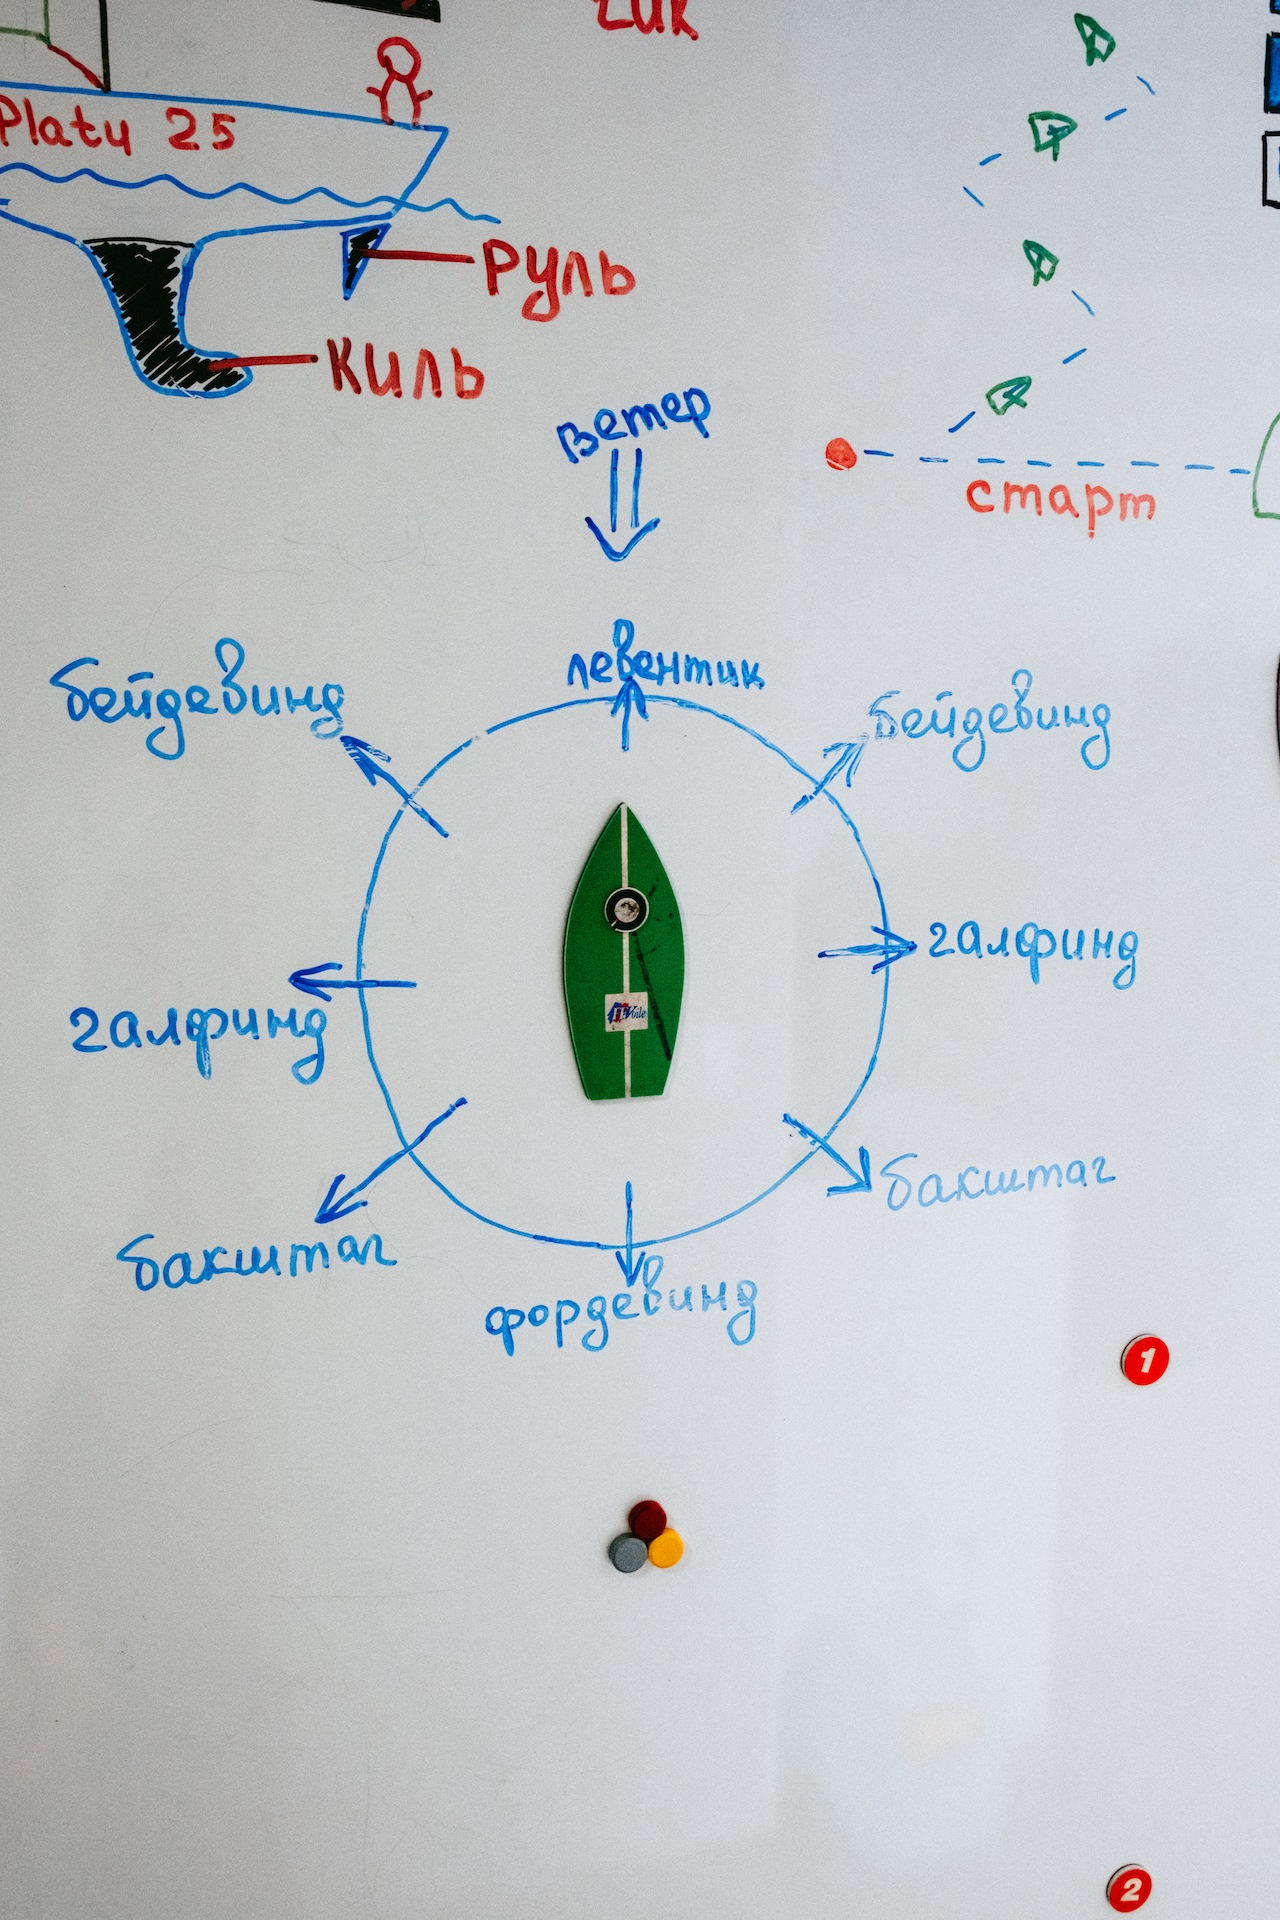 Platu 25
руль
киль
ветер
старт
левентик
бейдевинд
бейдевинд
галфинд
галфинд
бакштаг
бакштаг
фордевинд
1
2